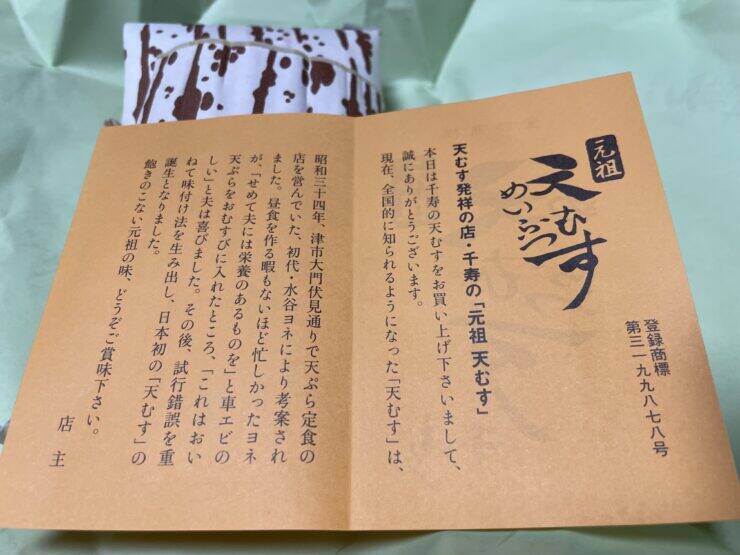 元祖
天むす
めいふつ
登録商標
第三一九九八七八号
天むす発祥の店・千寿の「元祖 天むす」
本日は千寿の天むすをお買い上げ下さいまして、
誠にありがとうございます。
現在、全国的に知られるようになった「天むす」は、
昭和三十四年、津市大門伏見通りで天ぷら定食の
店を営んでいた、初代・水谷ヨネにより考案され
ました。昼食を作る暇もないほど忙しかったヨネ
が、「せめて夫には栄養のあるものを」と車エビの
天ぷらをおむすびに入れたところ、「これはおい
しい」と夫は喜びました。その後、試行錯誤を重
ねて味付け法を生み出し、日本初の「天むす」の
誕生となりました。
飽きのこない元祖の味、どうぞご賞味下さい。
店主